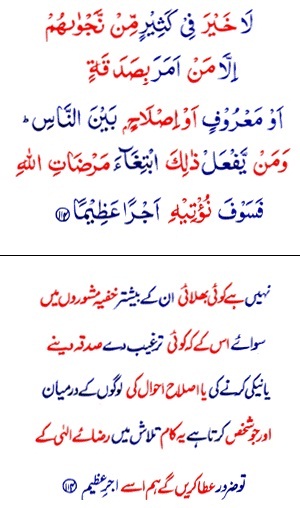 لَا خَيْرَ فِيْ كَثِيْرٍ مِّنْ نَّجْوٰىهُمْ
اِلَّا مَنْ اَمَرَ بِصَدَقَةٍ
اَوْ مَعْرُوْفٍ اَوْ اِصْلَاحٍ بَيْنَ النَّاسِ ؕ
وَمَنْ يَّفْعَلْ ذٰلِكَ ابْتِغَآءَ مَرْضَاتِ اللهِ
فَسَوْفَ نُؤْتِيْهِ اَجْرًا عَظِيْمًا ﴿۱۱۴﴾
نہیں ہے کوئی بھلائی ان کے بیشتر خفیہ مشوروں میں
سوائے اس کے کہ کوئی ترغیب دے صدقہ دینے
یا نیکی کرنے کی یا اصلاح احوال کی لوگوں کے درمیان
اور جو شخص کرتا ہے یہ کام تلاش میں رضائے الٰہی کے
تو ضرور عطا کریں گے ہم اسے اجرِ عظیم ﴿۱۱۴﴾